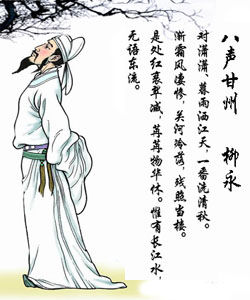 八声甘州 柳永
对潇潇、暮雨洒江天，一番洗清秋。
渐霜风凄惨，关河冷落，残照当楼。
是处红衰翠减，苒苒物华休。惟有长江水，
无语东流。